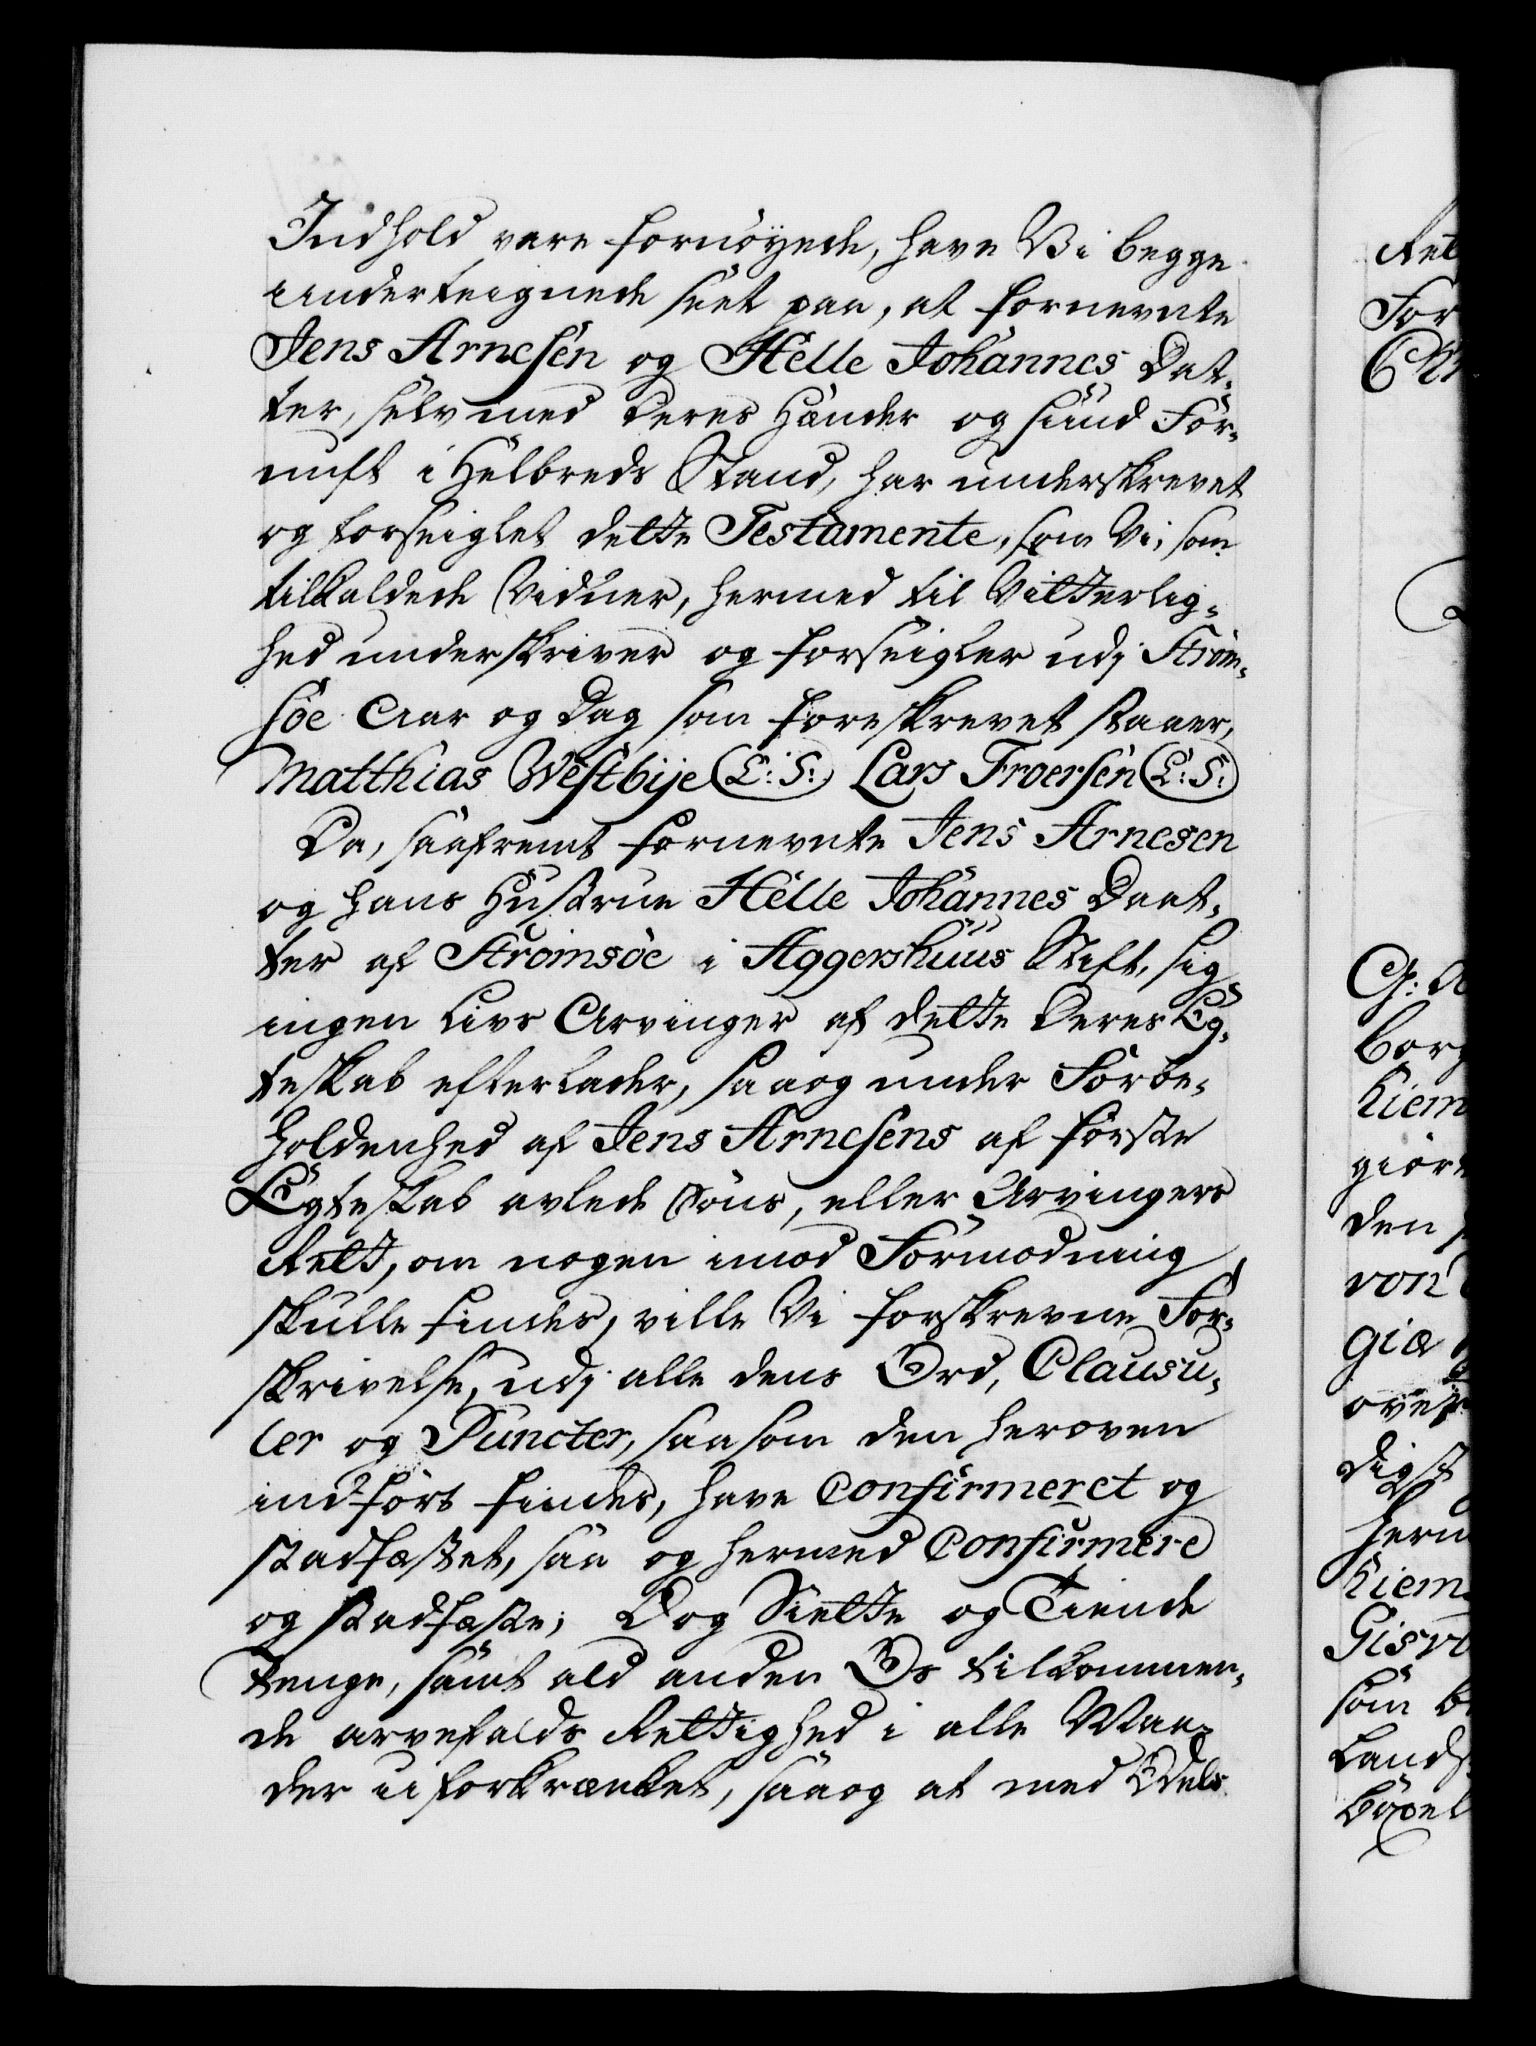 Indhold vare fornöyede, have Vi begge
underteignede seet paa, at fornevnte
Jens Arnesen og Helle Johannes Dat,
ter, selv med deres Hænder og sund For,
nuft i Helbreds Stand, har underskrevet
og forseiglet dette Testamente, som Vi, som
tilkaldede Vidner, hermed til Vitterlig,
hed underskriver og forseigler udj Ström,
söe Aar og Dag som foreskrevet staaer,
Matthias Westbye (L: S:) Lars Troersen (L: S:)
Da, saafremt fornevnte Jens Arnesen
og hans Hustrue Helle Johannes Daat,
ter af Strömsöe i Aggershuus Stift, sig
ingen Livs Arvinger af dette deres Eg,
teskab efterlader, saa og under Forbe,
holdenhed af Jens Arnesens af förste
Egteskab avlede Söns, eller Arvingers
Rett, om nogen imod Formodning
skulle findes, ville Vi forskrevne For,
skrivelse, udj alle dens Ord, Clausu,
ler og Puncter, saasom den heroven
indfört findes, have Confirmeret og
stadfæstet, saa og hermed Confirmere
og stadfæste; Dog Siette og Tiende
Penge, samt ald anden Os tilkommen,
de arvefalds Rettighed i alle Maa,
der uforkrænket, saa og at med Odels
Ret
For
G: A
borg
Kiem
giör
den
von
giæ
over
digst
herm
Kiem
som be
Lands